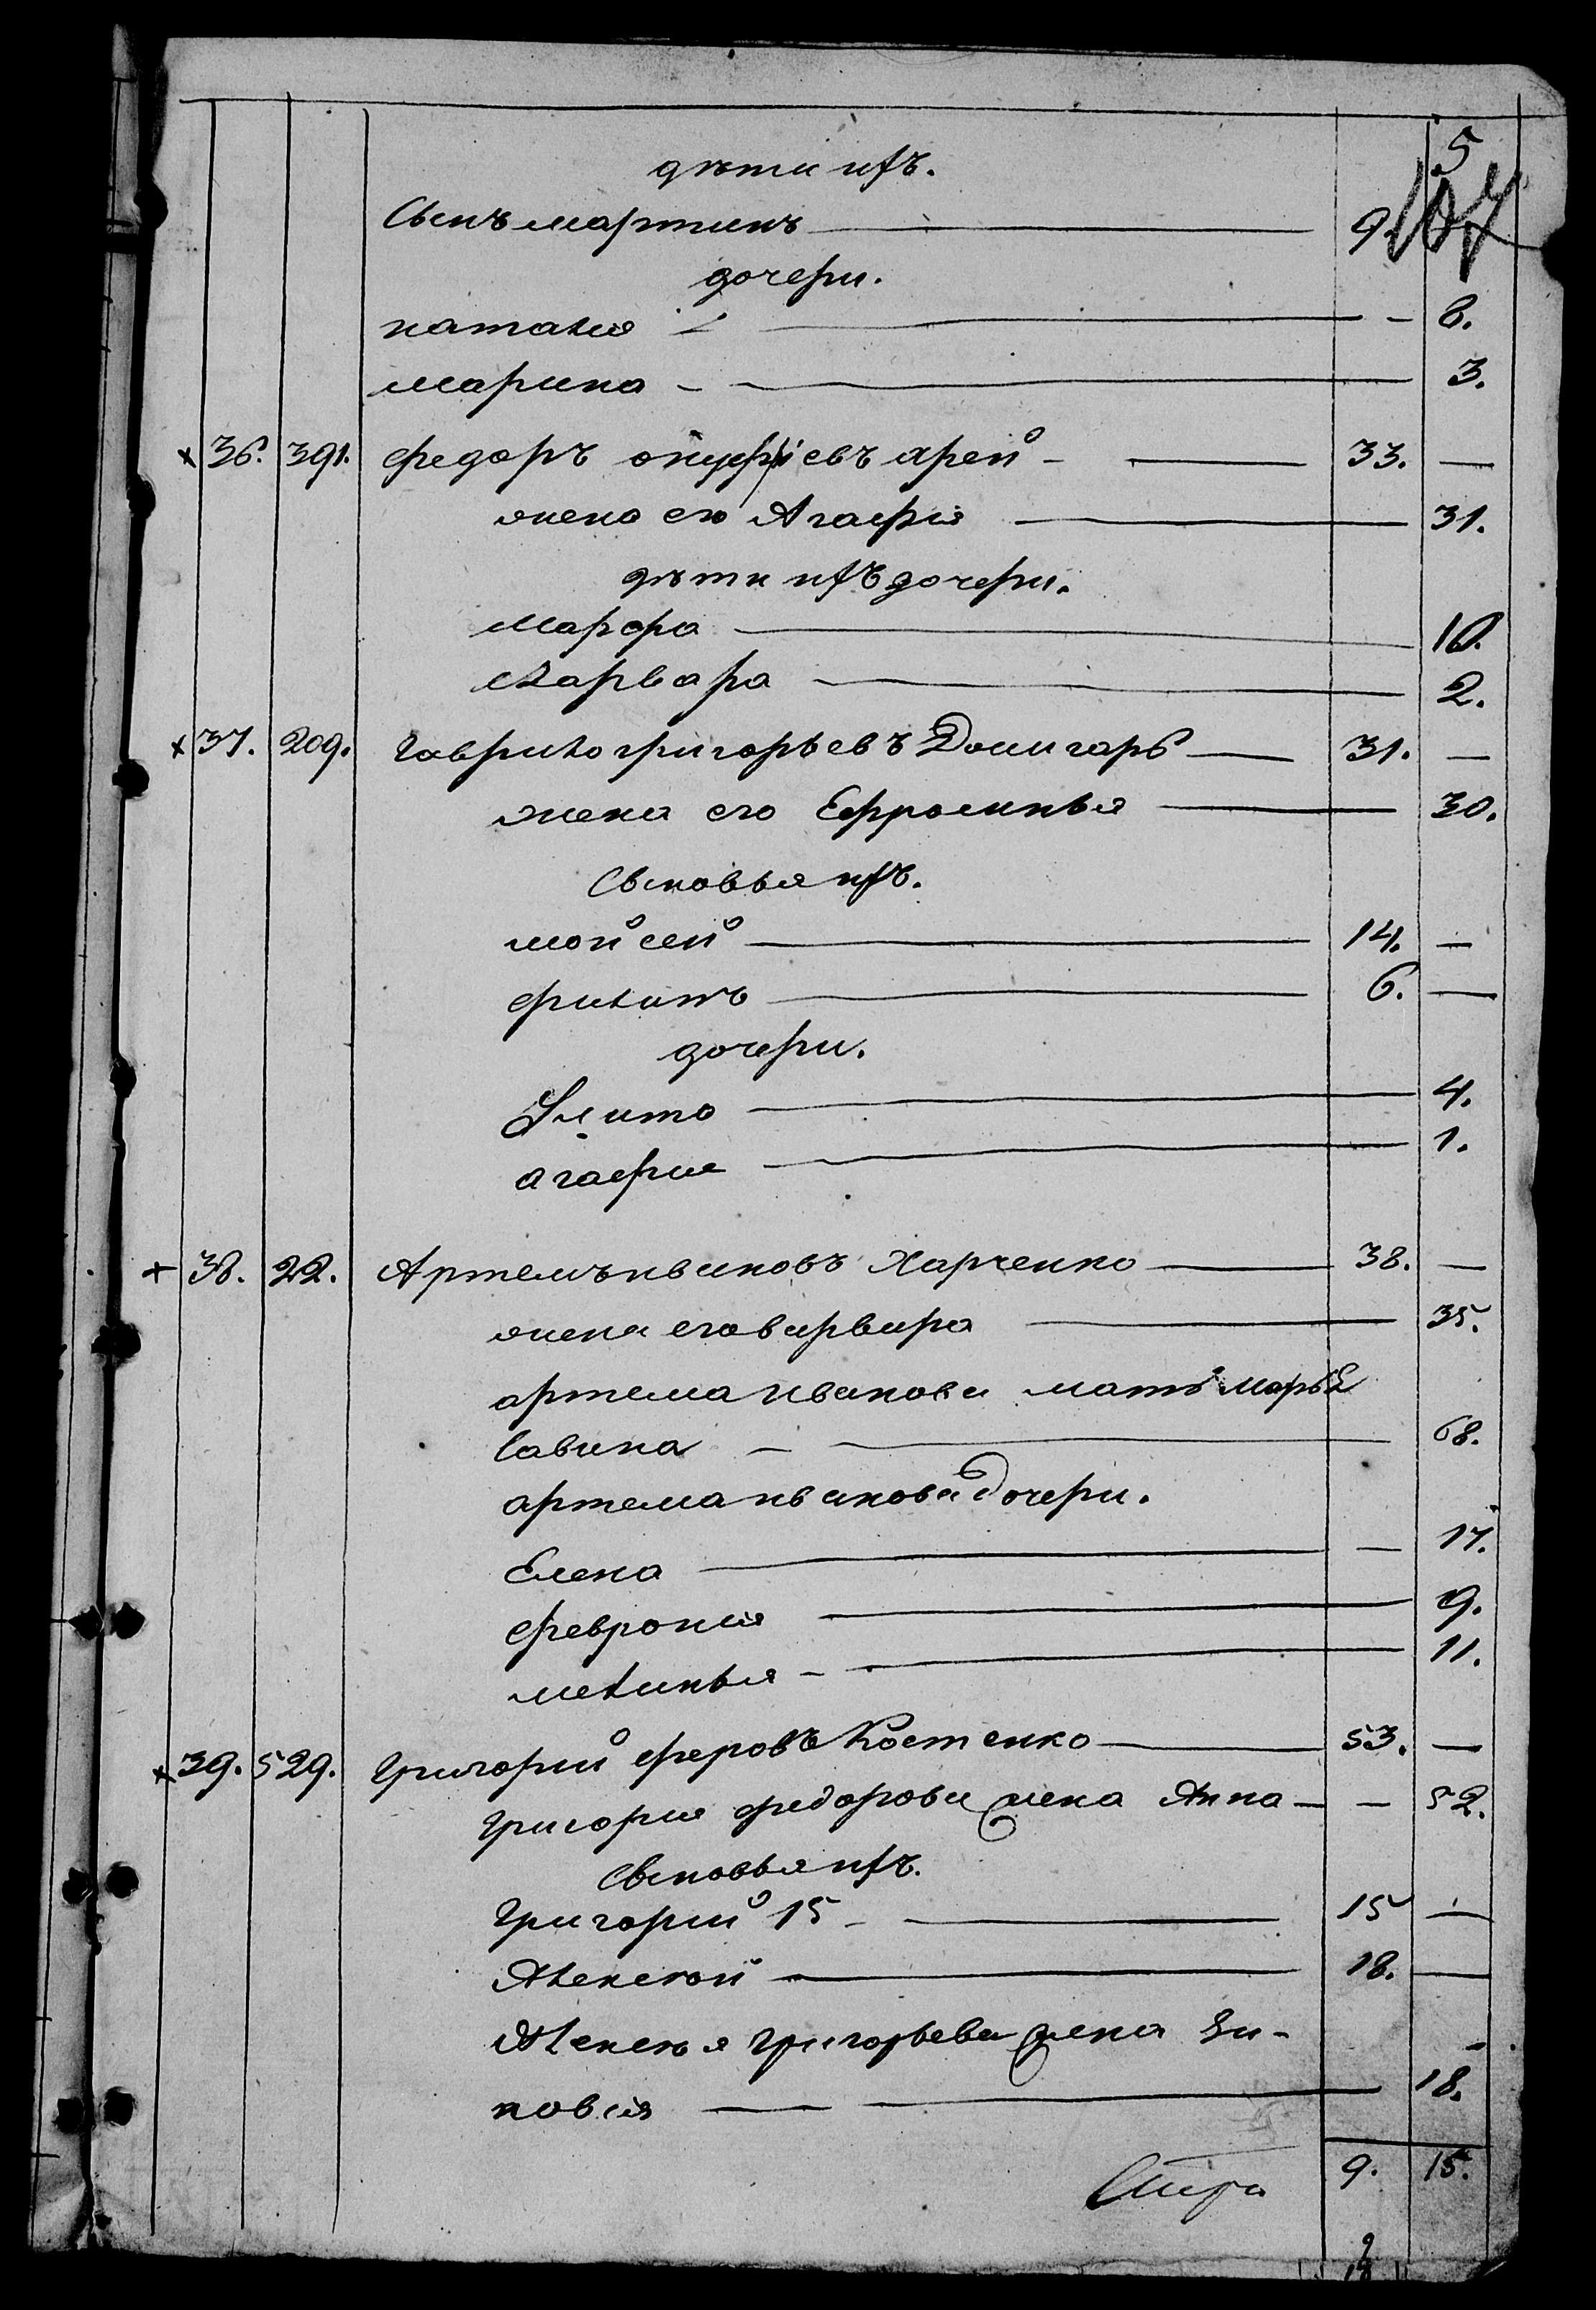 5
107
дѣти ихъ.
Сынъ мартинъ — 9.
дочери.
наталия — — 8.
марина — — 3.
x 36. 391. федоръ онуфріевъ ярей — 33. —
жена его Агафия — 31.
дѣти ихъ дочери.
Марфа — 10.
Варвара — 2.
x 37. 209. гаврило григорьевъ Донигарь — 31. —
жена его Ефросинья — 30.
Сыновья ихъ.
мойсей — 14. —
филипъ — 6. —
дочери.
Улита — 4.
агафия — 1.
+ 38. 22. Артемъ ивановъ Харченко — 38. —
жена его варвара — 35.
артема иванова мать марья
Савина — — 68.
артема иванова дочери.
Елена — — 17.
феврония — 9.
меланья — — 11.
x 39. 529. Григорий феровъ Костенко — 53. —
григория федорова жена Анна — — 52.
Сыновья ихъ.
Григорий 15 — 15 —
Алексей — 18. —
Алексея григорьева жена Зи-
новия — — 18.
9. 15.